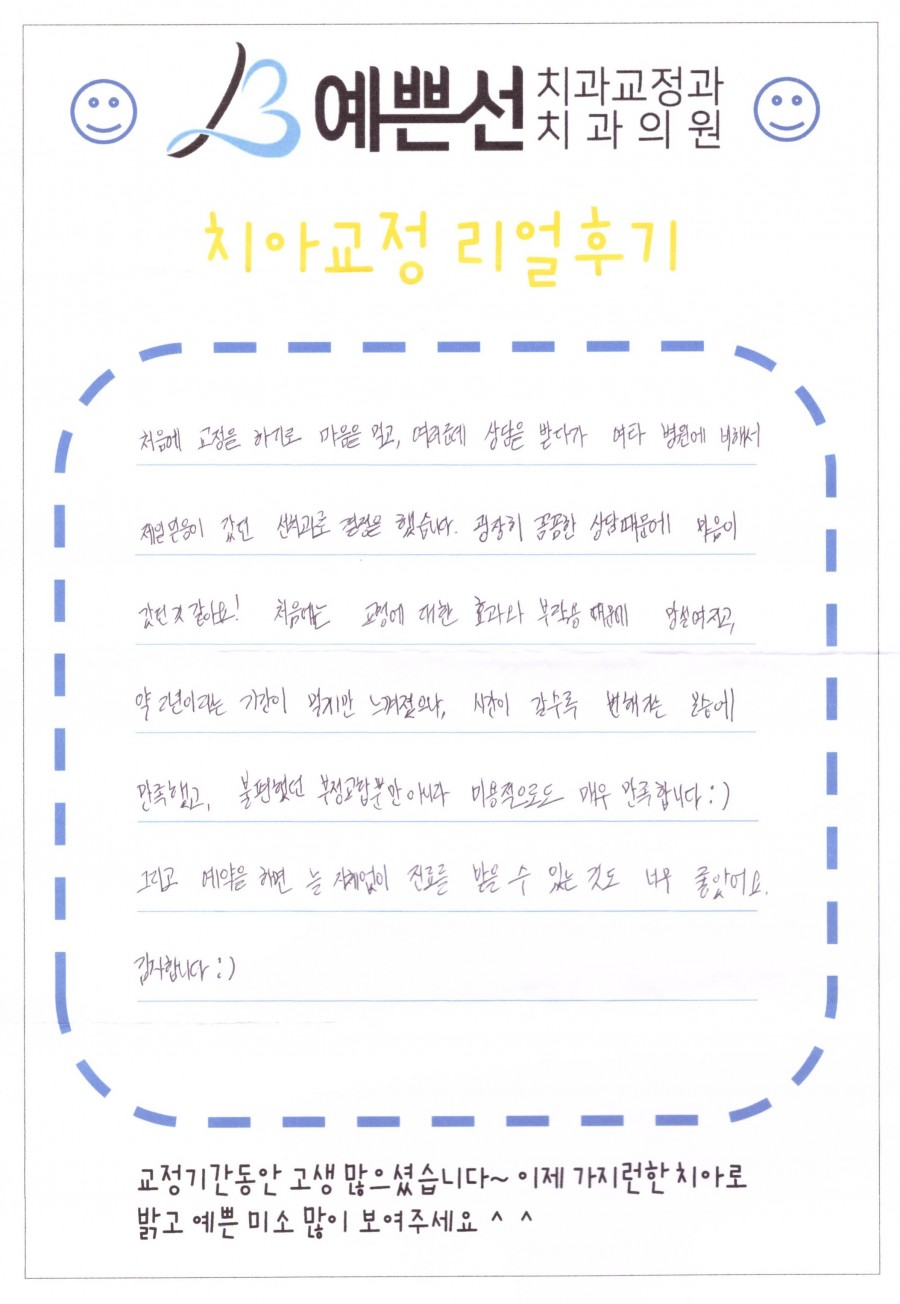 예쁜선 치과교정과
치과의원
치아교정 리얼후기
처음에 교정을 하기로 마음을 먹고, 여러군데 상담을 받다가 여타 병원에 비해서
제일 믿음이 갔던 선치과로 결정을 했습니다. 굉장히 꼼꼼한 상담때문에 믿음이
갔던것 같아요! 처음에는 교정에 대한 효과와 부작용 때문에 망설여지고,
약 2년이라는 기간이 멀지만 느껴졌으나, 시간이 갈수록 변해가는 모습에
만족했고, 불편했던 부정교합뿐만 아니라 미용적으로도 매우 만족합니다 :)
그리고 예약을 하면 늘 지체없이 진료를 받을 수 있는 것도 너무 좋았어요.
감사합니다 :)
교정기간동안 고생 많으셨습니다~ 이제 가지런한 치아로
밝고 예쁜 미소 많이 보여주세요 ^ ^